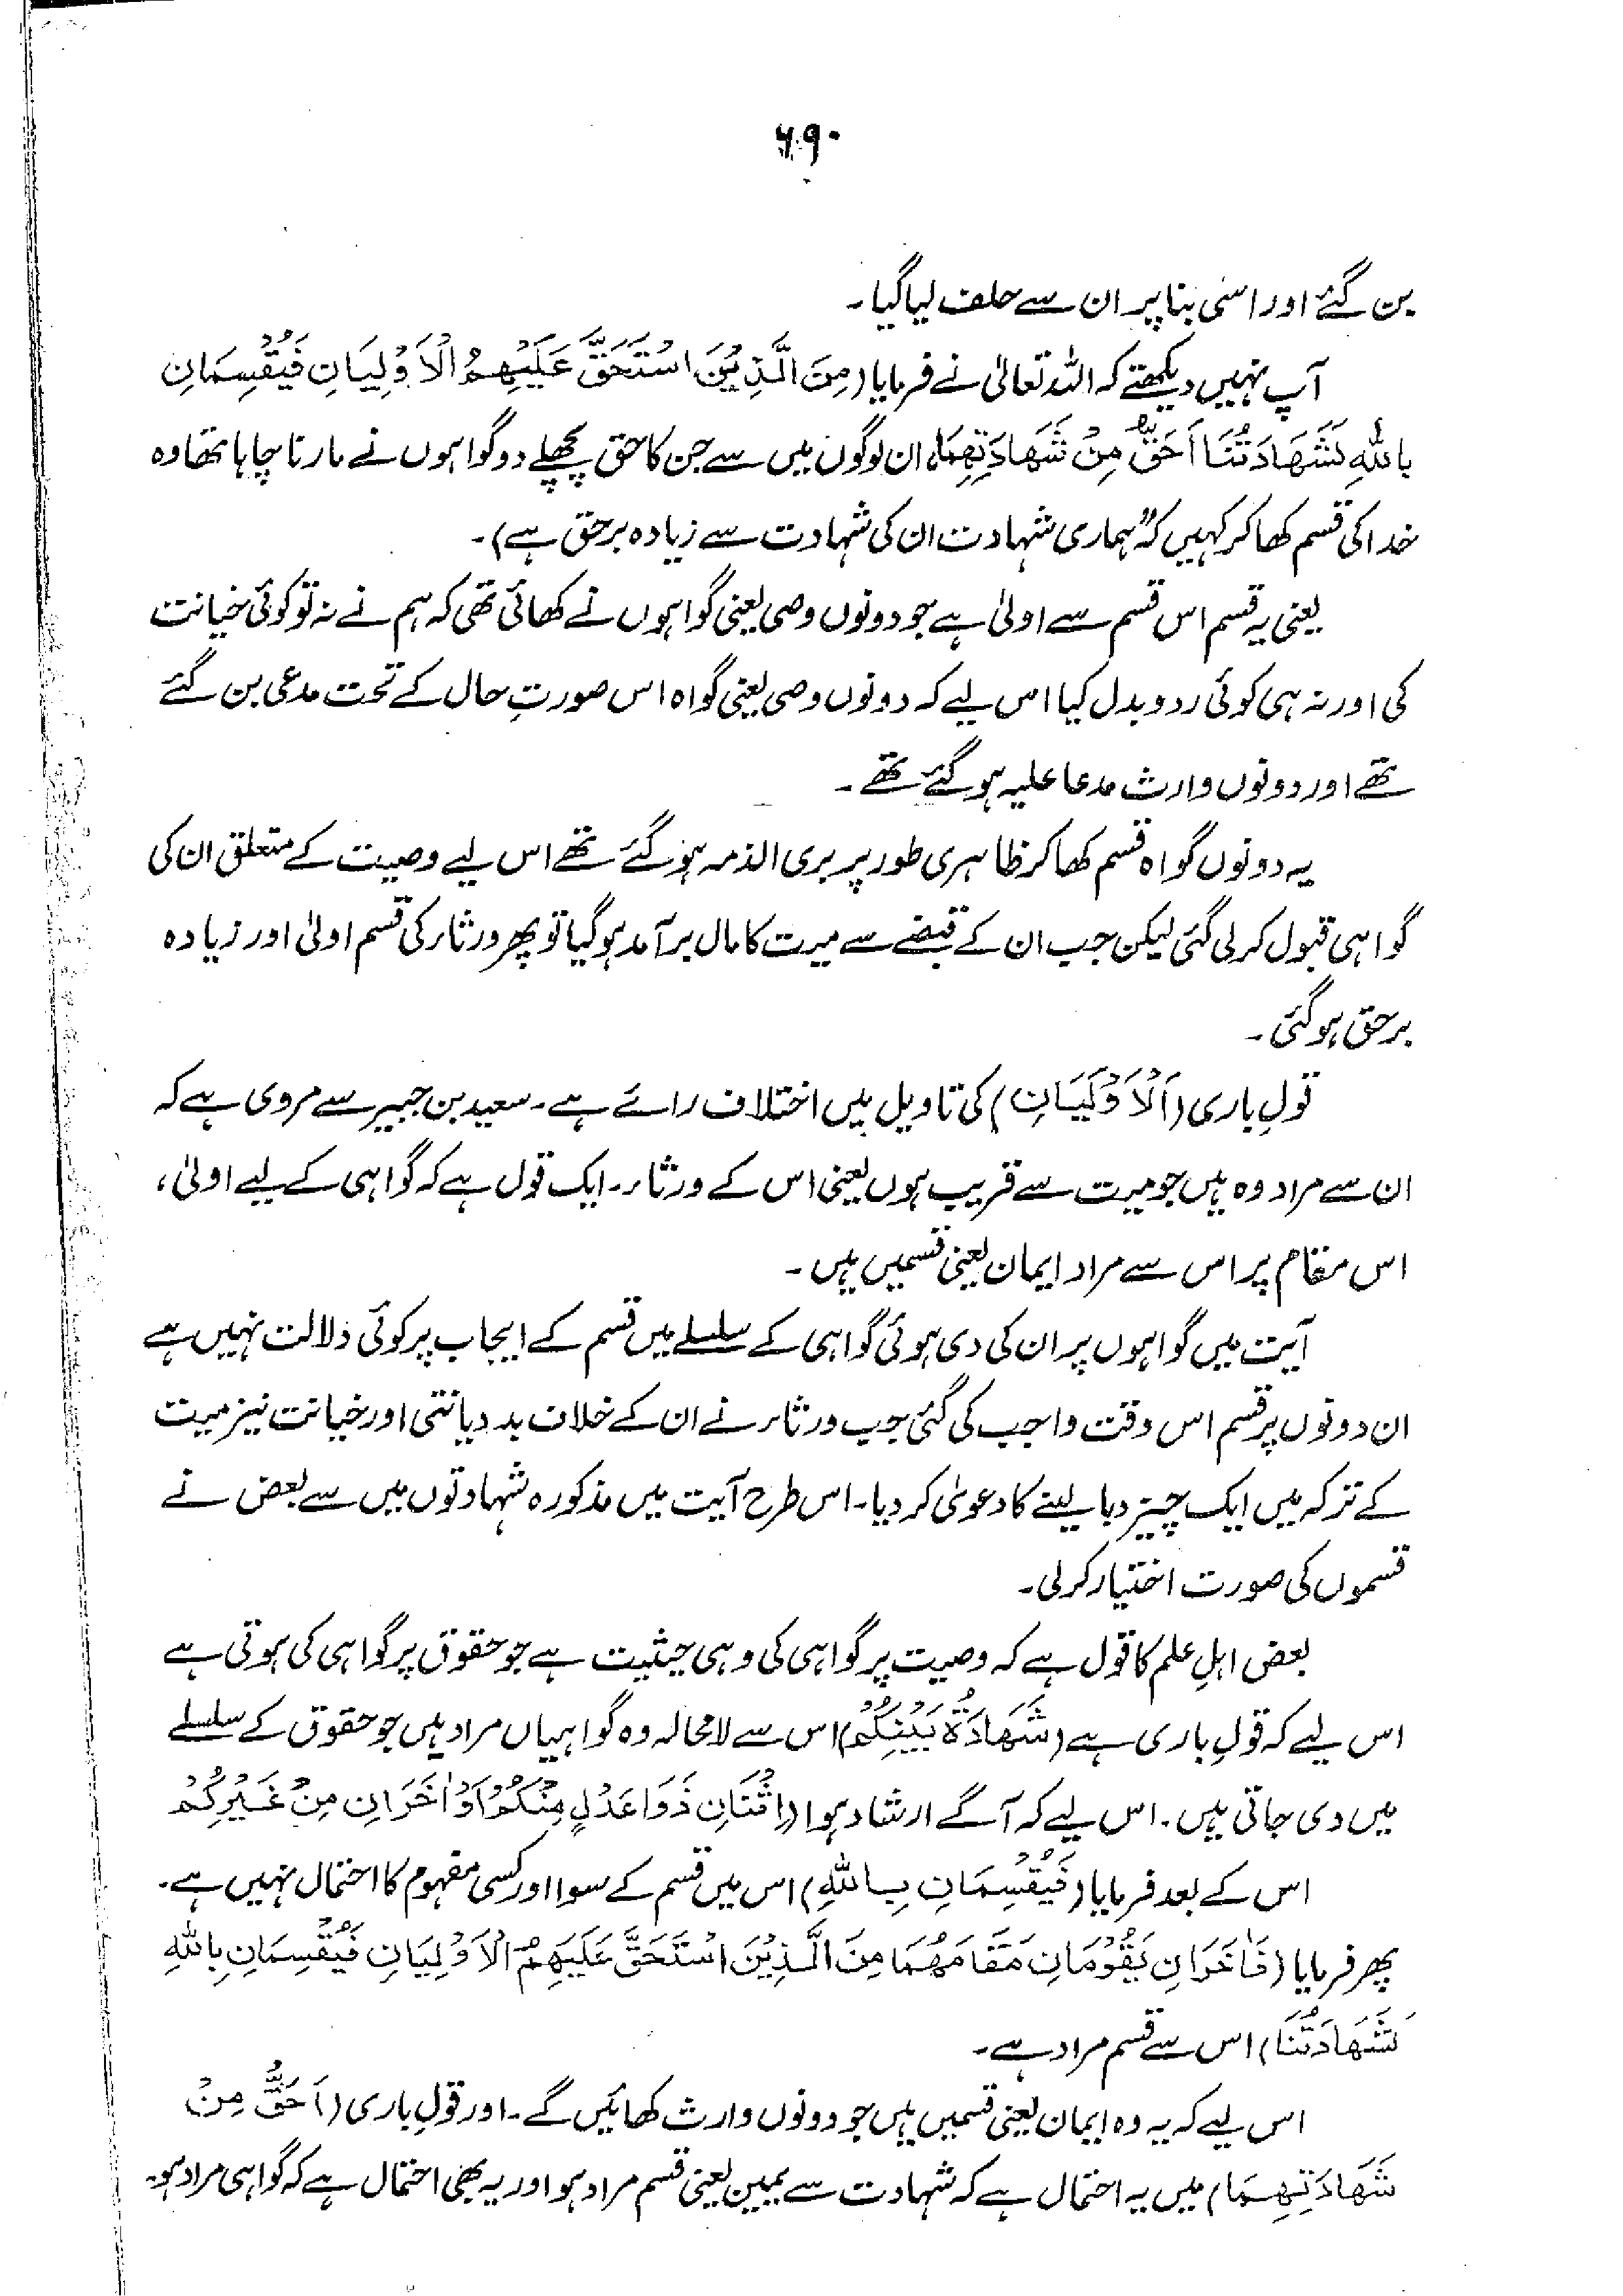 ۵۹۰
بن گئے اور اسی بنا پر ان سے حلف لیا گیا۔
آپ نہیں دیکھتے کہ اللہ تعالیٰ نے فرمایا (مِنَ الَّذِیْنَ اسْتَحَقَّ عَلَیْھِمُ الْاَوْلِیَانِ فَیُقْسِمَانِ
بِاللّٰہِ لَشَھَادَتُنَا اَحَقُّ مِنْ شَھَادَتِھِمَا، ان لوگوں میں سے جن کا حق پچھلے دو گواہوں نے مارنا چاہا تھا وہ
خدا کی قسم کھا کر کہیں کہ "ہماری شہادت ان کی شہادت سے زیادہ برحق ہے)۔
یعنی یہ قسم اس قسم سے اولیٰ ہے جو دونوں وصی یعنی گواہوں نے کھائی تھی کہ ہم نے نہ تو کوئی خیانت
کی اور نہ ہی کوئی ردوبدل کیا اس لیے کہ دونوں وصی یعنی گواہ اس صورتِ حال کے تحت مدعی بن گئے
تھے اور دونوں وارث مدعا علیہ ہو گئے تھے۔
یہ دونوں گواہ قسم کھا کر ظاہری طور پر بری الذمہ ہو گئے تھے اس لیے وصیت کے متعلق ان کی
گواہی قبول کرلی گئی لیکن جب ان کے قبضے سے میت کا مال برآمد ہوگیا تو پھر ورثاء کی قسم اولیٰ اور زیادہ
برحق ہوگئی۔
قولِ باری (اَلْاَوْلَیَانِ) کی تاویل میں اختلاف رائے ہے۔ سعید بن جبیر سے مروی ہے کہ
ان سے مراد وہ ہیں جو میت سے قریب ہوں یعنی اس کے ورثاء۔ ایک قول ہے کہ گواہی کے لیے اولیٰ،
اس مقام پر اس سے مراد ایمان یعنی قسمیں ہیں۔
آیت میں گواہوں پر ان کی دی ہوئی گواہی کے سلسلے میں قسم کے ایجاب پر کوئی دلالت نہیں ہے
ان دونوں پر قسم اس وقت واجب کی گئی جب ورثاء نے ان کے خلاف بددیانتی اور خیانت نیز میت
کے ترکہ میں ایک چیز دبا لینے کا دعویٰ کر دیا۔ اس طرح آیت میں مذکورہ شہادتوں میں سے بعض نے
قسموں کی صورت اختیار کرلی۔
بعض اہلِ علم کا قول ہے کہ وصیت پر گواہی کی وہی حیثیت ہے جو حقوق پر گواہی کی ہوتی ہے
اس لیے کہ قولِ باری ہے (شَھَادَۃُ بَیْنِکُمْ) اس سے لامحالہ وہ گواہیاں مراد ہیں جو حقوق کے سلسلے
میں دی جاتی ہیں۔ اس لیے کہ آگے ارشاد ہوا (اِثْنَانِ ذَوَا عَدْلٍ مِنْکُمْ اَوْ اٰخَرَانِ مِنْ غَیْرِکُمْ
اس کے بعد فرمایا (فَیُقْسِمَانِ بِاللّٰہِ) اس میں قسم کے سوا اور کسی مفہوم کا احتمال نہیں ہے۔
پھر فرمایا (فَاٰخَرَانِ یَقُوْمَانِ مَقَامَھُمَا مِنَ الَّذِیْنَ اسْتَحَقَّ عَلَیْھِمُ الْاَوْلِیَانِ فَیُقْسِمَانِ بِاللّٰہِ
لَشَھَادَتُنَا) اس سے قسم مراد ہے۔
اس لیے کہ یہ وہ ایمان یعنی قسمیں ہیں جو دونوں وارث کھائیں گے۔ اور قولِ باری (اَحَقُّ مِنْ
شَھَادَتِھِمَا) میں یہ احتمال ہے کہ شہادت سے یمین یعنی قسم مراد ہو اور یہ بھی احتمال ہے کہ گواہی مراد ہو۔